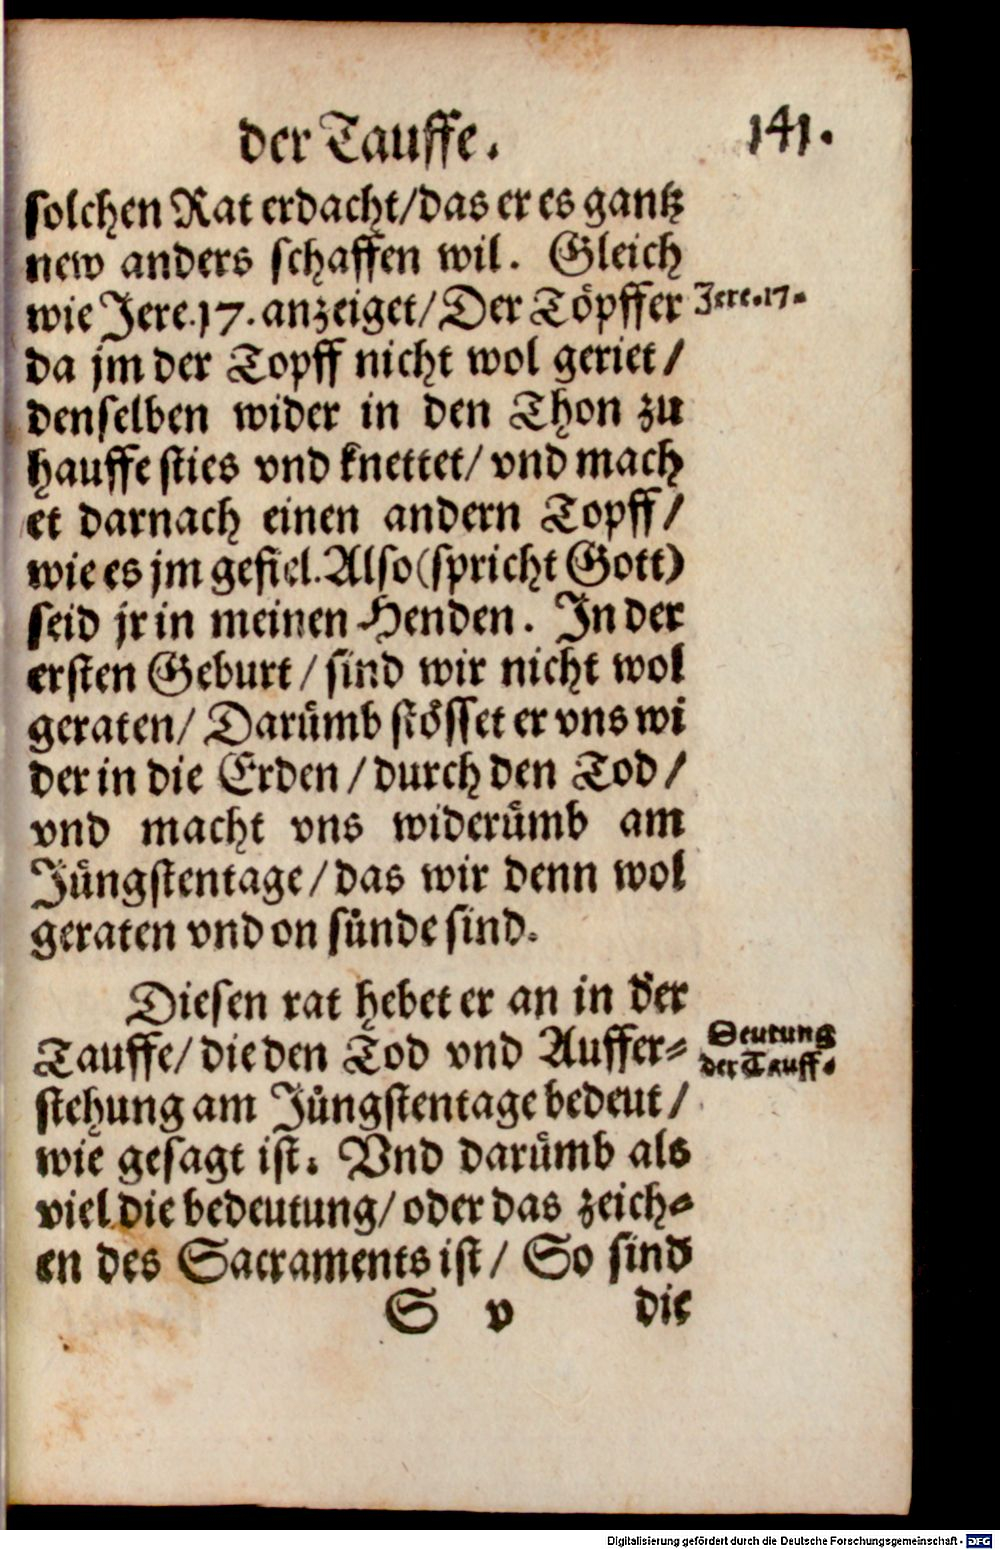 der Tauffe. 141.
solchen Rat erdacht/das er es gantz
new anders schaffen wil. Gleich
wie Jere.17. anzeiget/Der Töpffer
Jere.17.
da jm der Topff nicht wol geriet/
denselben wider in den Thon zu
hauffe sties vnd knettet/ vnd mach
et darnach einen andern Topff/
wie es jm gefiel. Also (spricht Gott)
seid jr in meinen Henden. In der
ersten Geburt/ sind wir nicht wol
geraten/ Darümb stösset er vns wi
der in die Erden/durch den Tod/
vnd macht vns widerümb am
Jüngstentage/das wir denn wol
geraten vnd on sünde sind.
Diesen rat hebet er an in der
Tauffe/ die den Tod vnd Auffer-
Deutung
der Tauff.
stehung am Jüngstentage bedeut/
wie gesagt ist. Vnd darümb als
viel die bedeutung/ oder das zeich-
en des Sacraments ist/ So sind
S v die
Digitalisierung gefördert durch die Deutsche Forschungsgemeinschaft - DFG